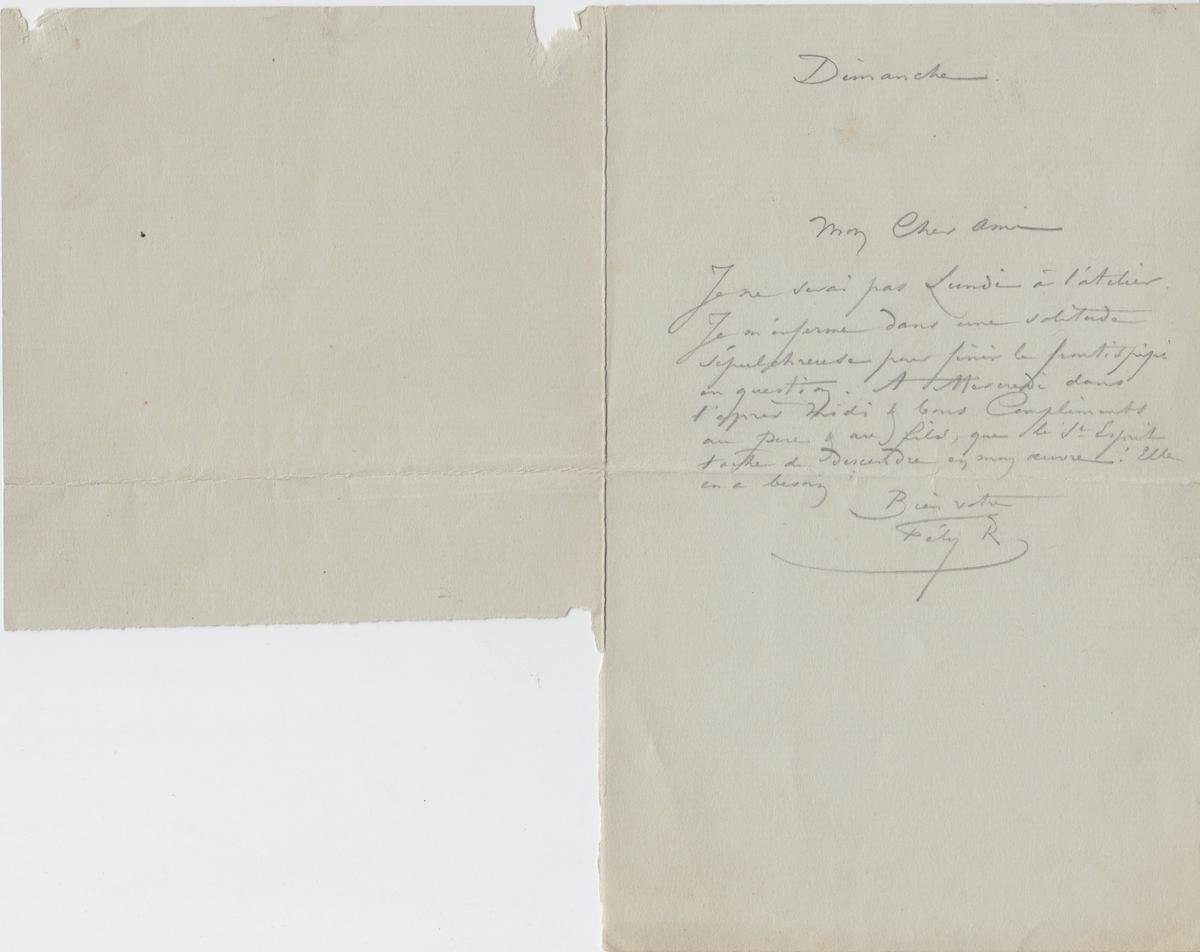 Dimanche
Mon Cher ami
Je ne serai pas Lundi à l'atelier.
Je m'enferme dans une solitude
sépulchreuse pour finir le frontispice
en question. A Mercredi dans
l'après midi & bons Compliments
au père & au fils, que le St Esprit
tâche de Descendre en mon œuvre! Elle
en a besoin!
Bien votre
Fély R